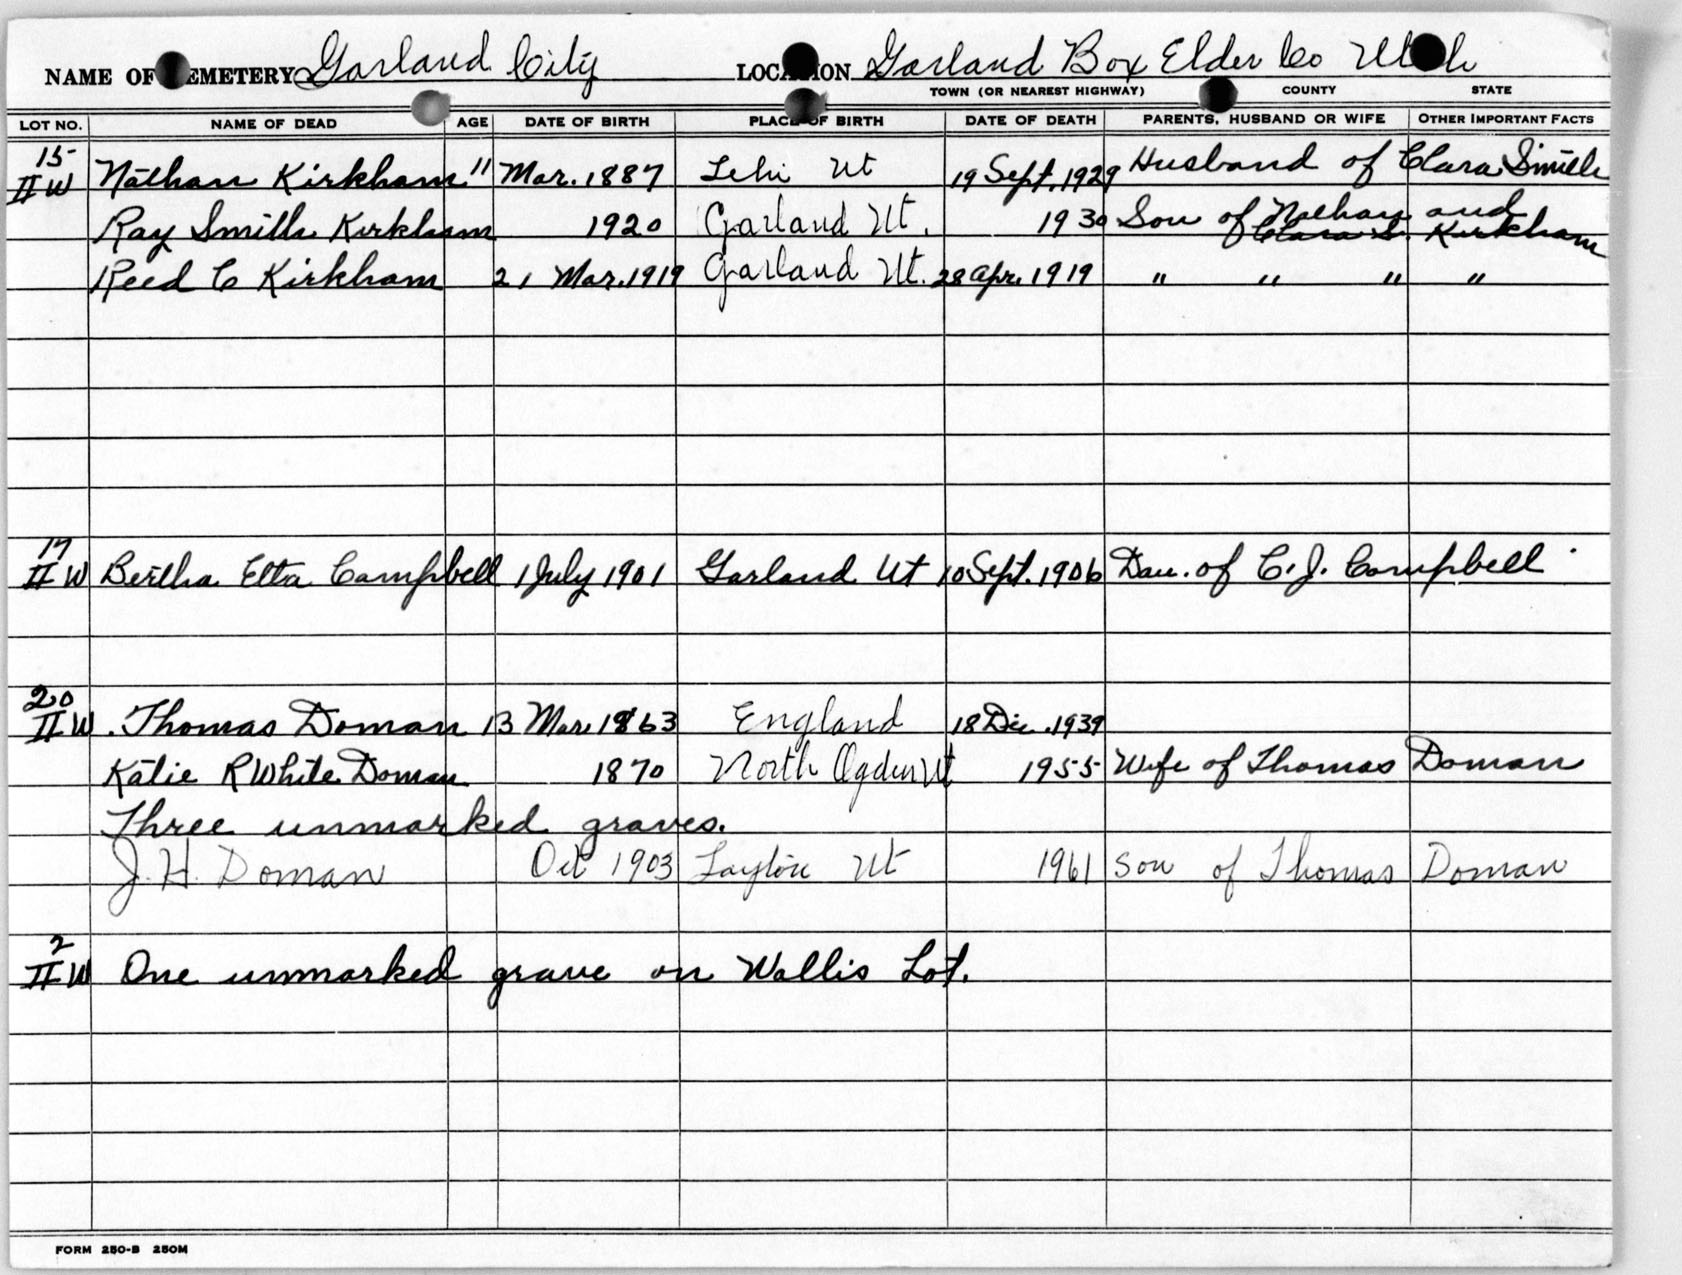 NAME OF CEMETERY Garland City LOCATION Garland Box Elder Co Utah
TOWN (OR NEAREST HIGHWAY) COUNTY STATE
LOT NO. NAME OF DEAD AGE DATE OF BIRTH PLACE OF BIRTH DATE OF DEATH PARENTS, HUSBAND OR WIFE OTHER IMPORTANT FACTS
15
II W Nathan Kirkham 11 Mar. 1887 Lehi Ut 19 Sept. 1929 Husband of Clara Smith
Ray Smith Kirkham 1920 Garland Ut. 1930 Son of Nathan and
Clara S. Kirkham
Reed C Kirkham 21 Mar. 1919 Garland Ut. 28 Apr. 1919 " " " "
17
II W Bertha Etta Campbell 1 July 1901 Garland Ut 10 Sept. 1906 Dau. of C. J. Campbell
20
II W. Thomas Doman 13 Mar 1863 England 18 Dec. 1939
Katie R White Doman 1870 North Ogden Ut 1955 Wife of Thomas Doman
Three unmarked graves.
J. H. Doman Oct 1903 Layton Ut 1961 Son of Thomas Doman
2
II W One unmarked grave on Wallis Lot.
FORM 250-B 250M